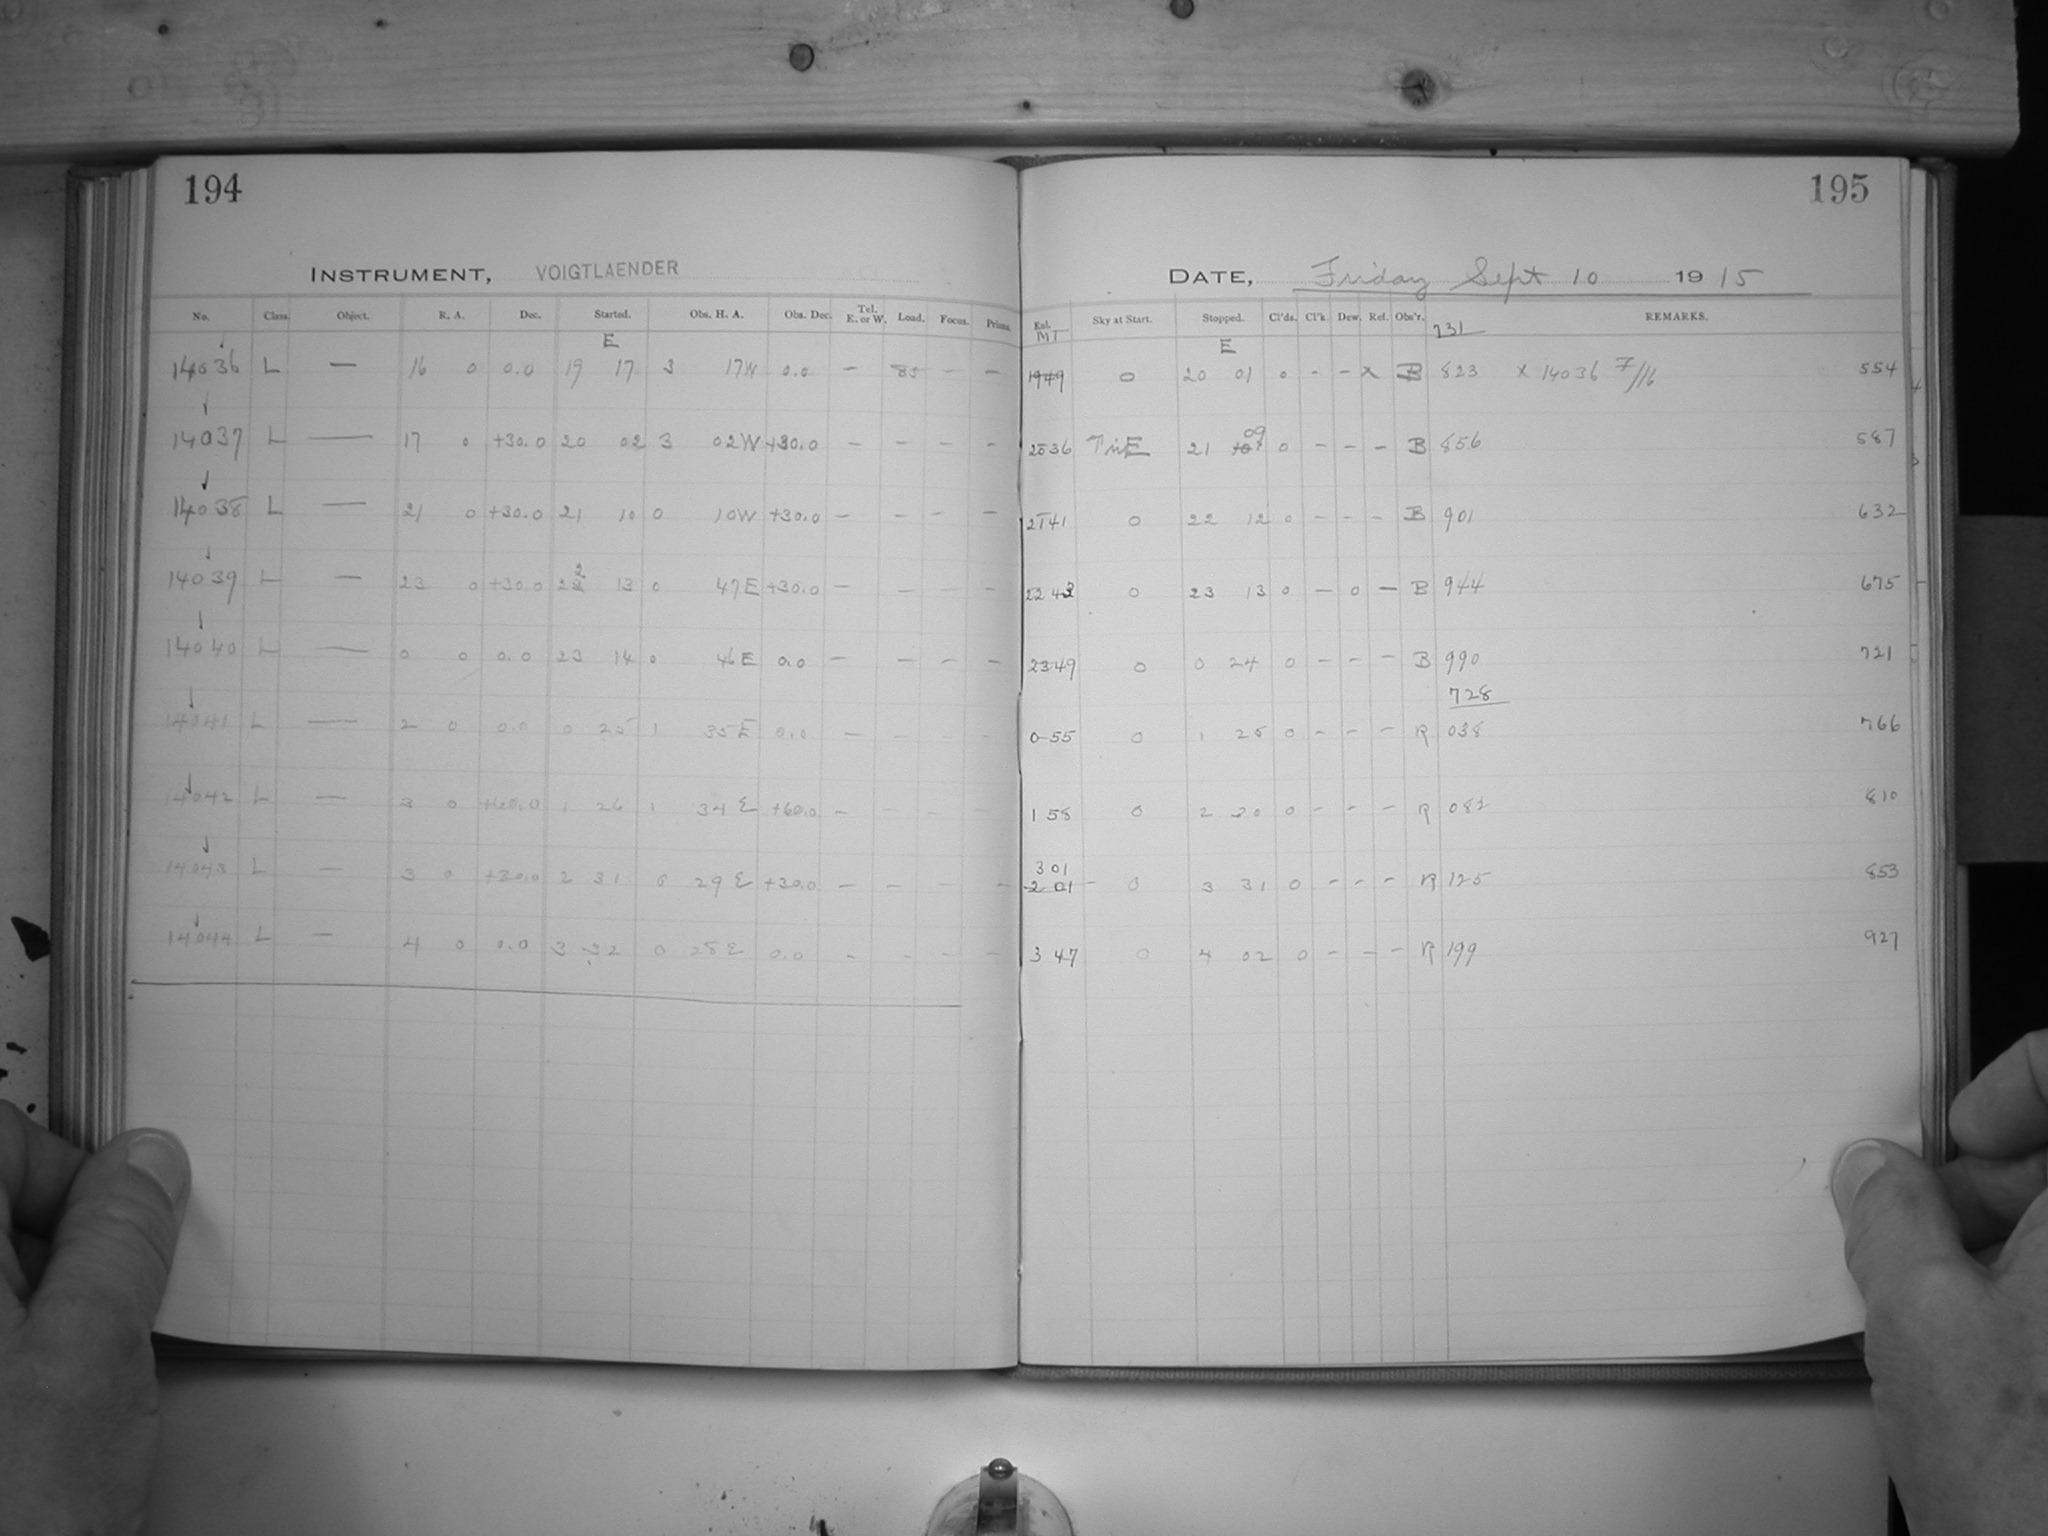 194
195
INSTRUMENT, VOIGTLAENDER
DATE, Friday Sept 10 1915
No. Class. Object. R. A. Dec. Started. Obs. H. A. Obs. Dec. Tel. E. or W. Load. Focus. Prisms.
Sky at Start. Stopped. Cl'ds. Cl'k. Dew. Ref. Obs'r. REMARKS.
MT
731
E
E
14036 L — 16 0 0.0 19 17 3 17W 0.0 — 85 — — 1949 0 20 01 0 - - x B 823 x 14036 7/16 554
14037 L — 17 0 +30.0 20 02 3 02W +30.0 — — — — 2036 E 21 09 0 - - - B 856 587
14038 L — 21 0 +30.0 21 10 0 10W +30.0 — — — — 2141 0 22 12 0 - - - B 901 632
14039 L — 23 0 +30.0 22 13 0 47E +30.0 — — — — 2243 0 23 13 0 — 0 — B 944 675
14040 L — 0 0 0.0 23 14 0 46E 0.0 — — — — 2349 0 0 24 0 - - - B 990 721
728
14041 L — 2 0 0.0 0 25 1 35E 0.0 — — — — 0 55 0 1 25 0 - - - R 038 766
14042 L — 3 0 +60.0 1 26 1 34E +60.0 — — — — 1 58 0 2 30 0 - - - R 082 810
3 01
14043 L — 3 0 +30.0 2 31 0 29E +30.0 — — — — 2 01 0 3 31 0 - - - R 125 853
14044 L — 4 0 0.0 3 32 0 28E 0.0 — — — — 3 47 0 4 02 0 - - - R 199 927